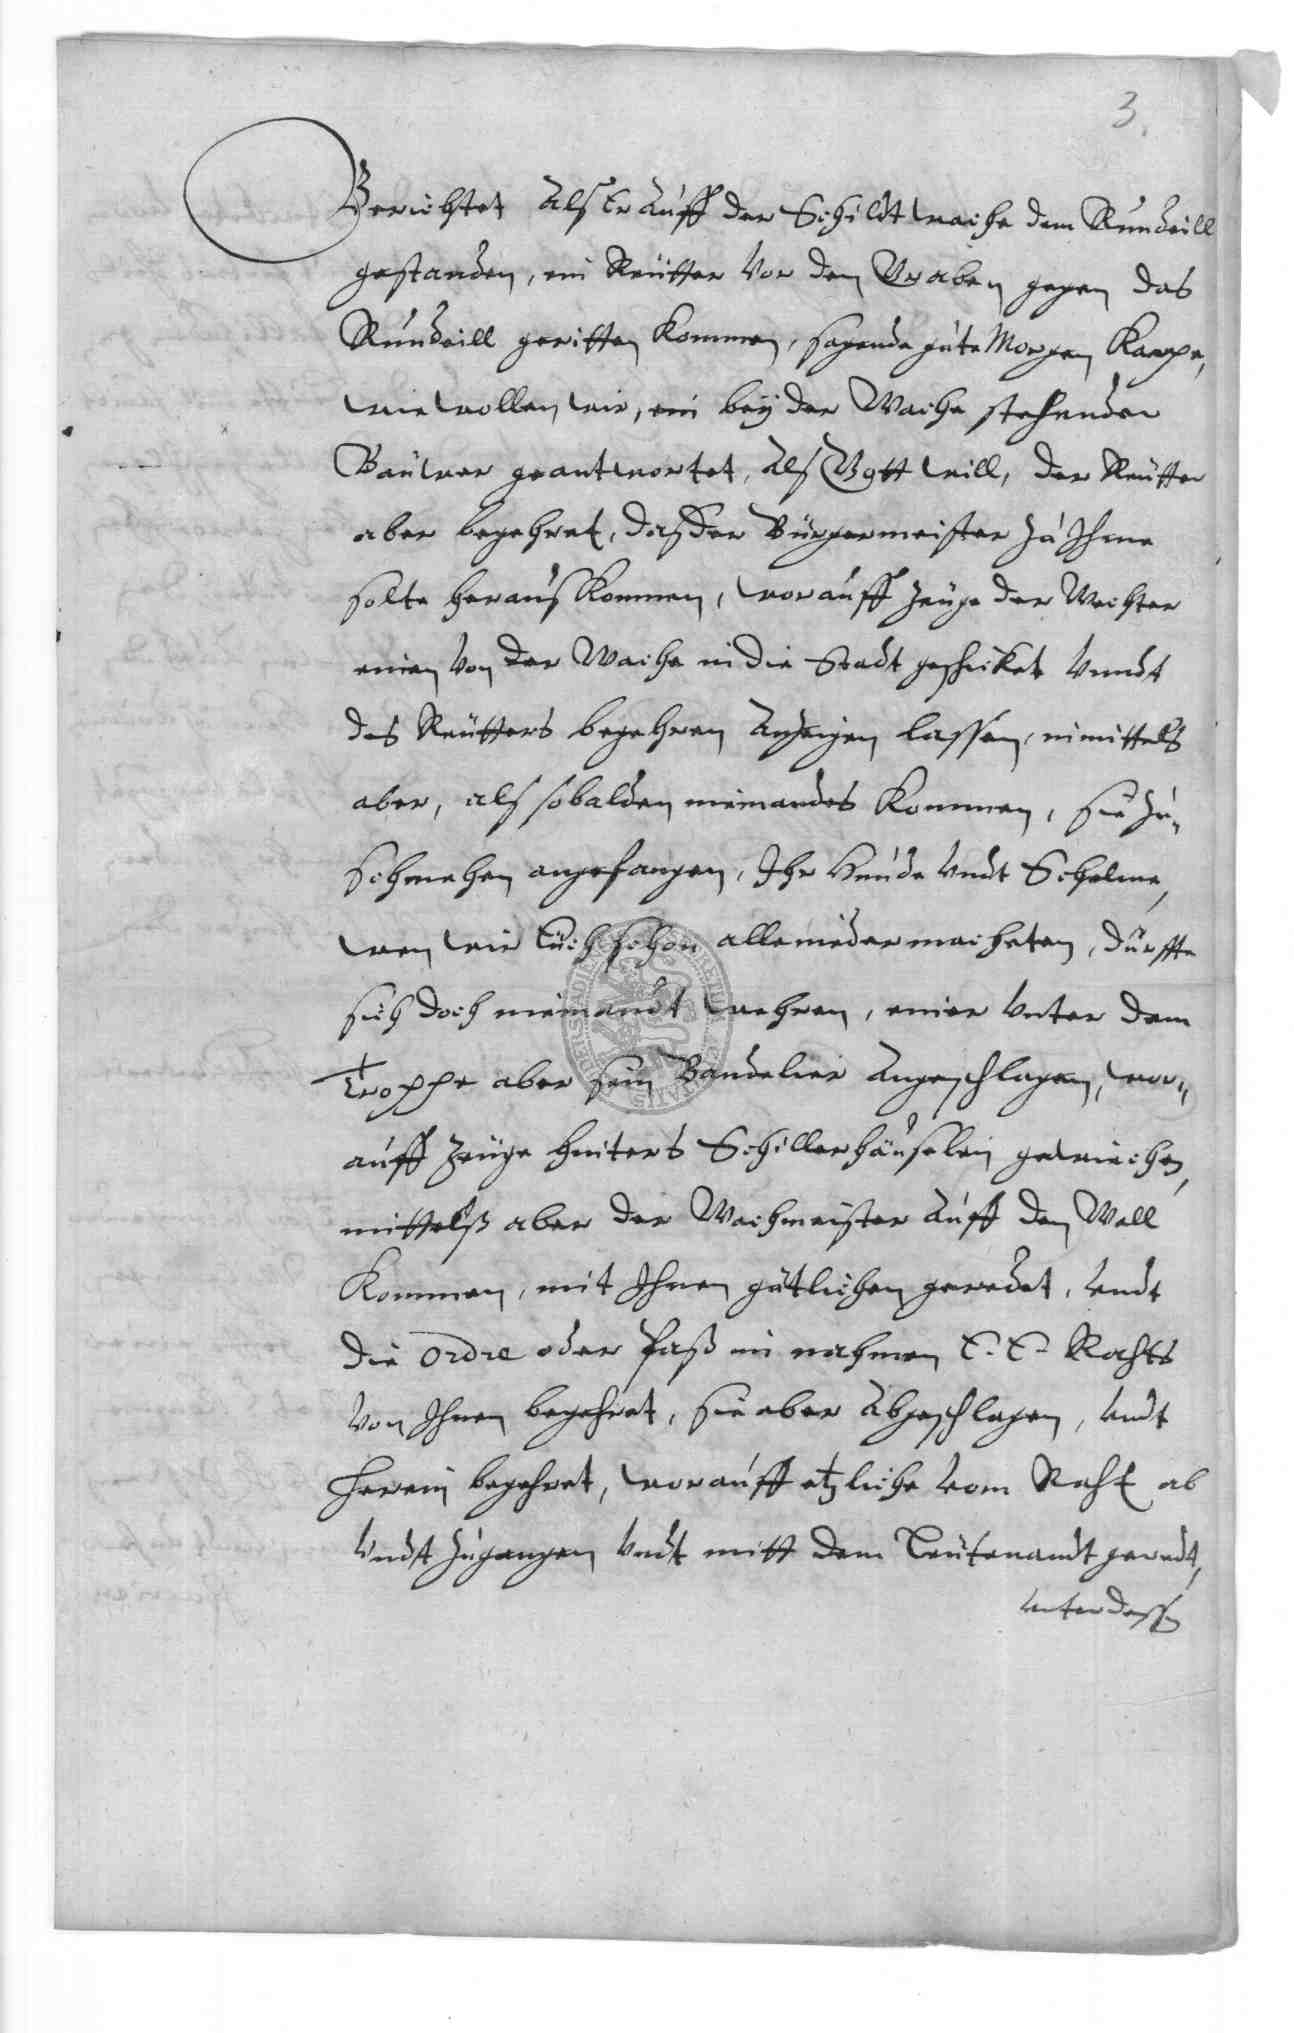 3.
Berichtet Alß Er Auff der Schildtwache dem Rundeill
gestanden, ein Reütter vor dem Graben gegen das
Rundeill geritten kommen, sagende gute Morgen
wie wollen wir, ein beÿ der Wache stehender
Bauwer geantwortet, Alß Gott will, der Reütter
aber begehret, daß der Bürgermeister zu Ihme
solte herauß kommen, worauff Zeuge der Wechter
einen von der Wache in die Stadt geschicket vnndt
des Reütters begehren Anzeigen lassen, inmittels
aber, alß sobalden niemandes kommen, sie zu
schmehen angefangen, Ihr Hunde vndt Schelme,
wen wir Euch schon alle nieder macheten, dürffte
sich doch niemandt wehren, einer vnter dem
Troppe aber sein Bandelier Angeschlagen, wor-
auff Zeuge hinters Schillerhäuselein gewichen,
mittelß aber der Wachmeister Auff den Wall
kommen, mit Ihnen gütlichen geredet, vndt
die Ordre oder Paß in nahmen E. E. Rahts
von Ihnen begehret, sie aber Abgeschlagen, vndt
herein begehret, worauff etzliche vom Raht ab
vndt zugangen vndt mitt dem Leutenandt geredt,
vnterdessen